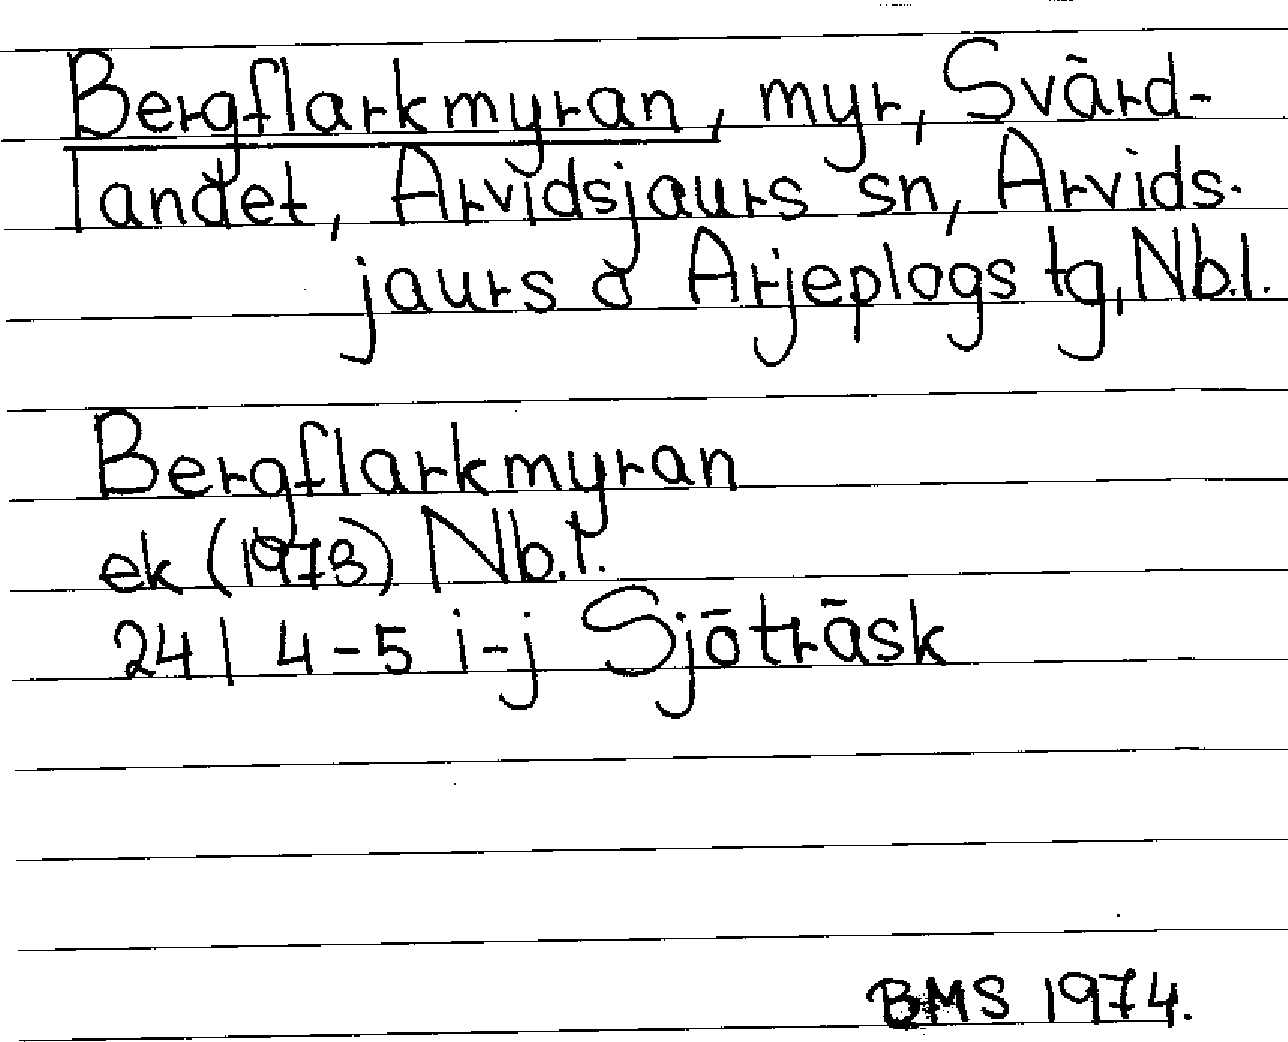 Bergflarkmyran, myr, Svärd-
landet, Arvidsjaurs sn, Arvids-
jaurs o Arjeplogs tg, Nb.l.
Bergflarkmyran
ek (1973) Nb.l.
24 I 4-5 i-j Sjöträsk
BMS 1974.